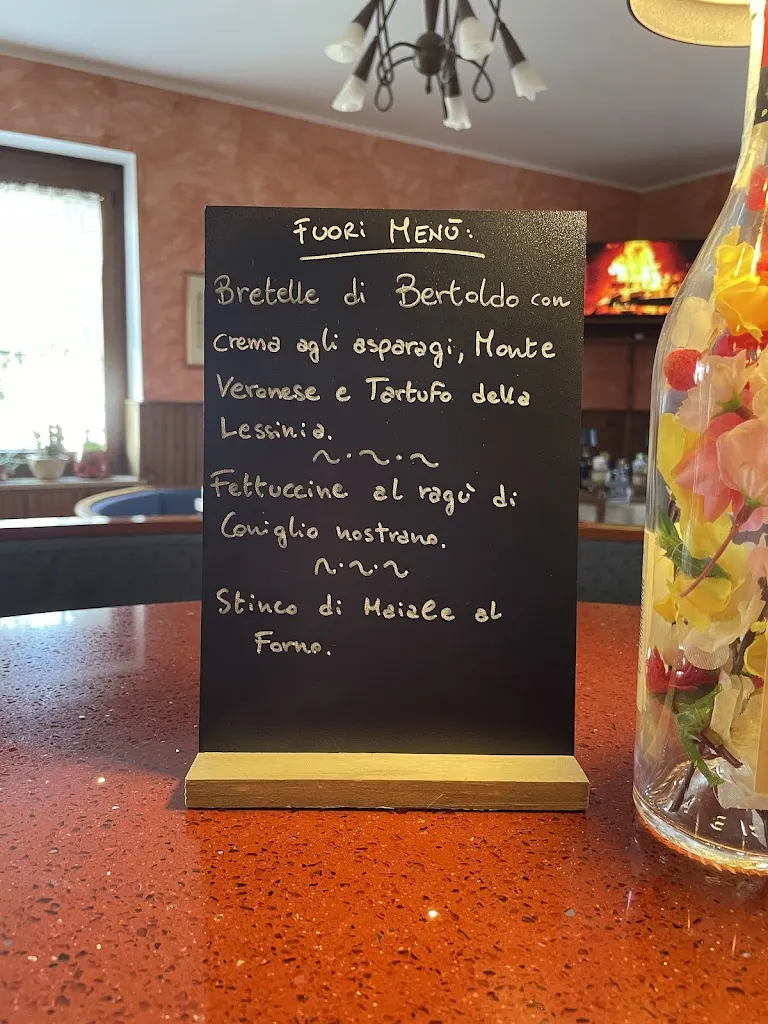 FUORI MENÙ:
Bretelle di Bertoldo con
crema agli asparagi, Monte
Veronese e Tartufo della
Lessinia.
~.~.~
Fettuccine al ragù di
Coniglio nostrano.
~.~.~
Stinco di Maiale al
Forno.